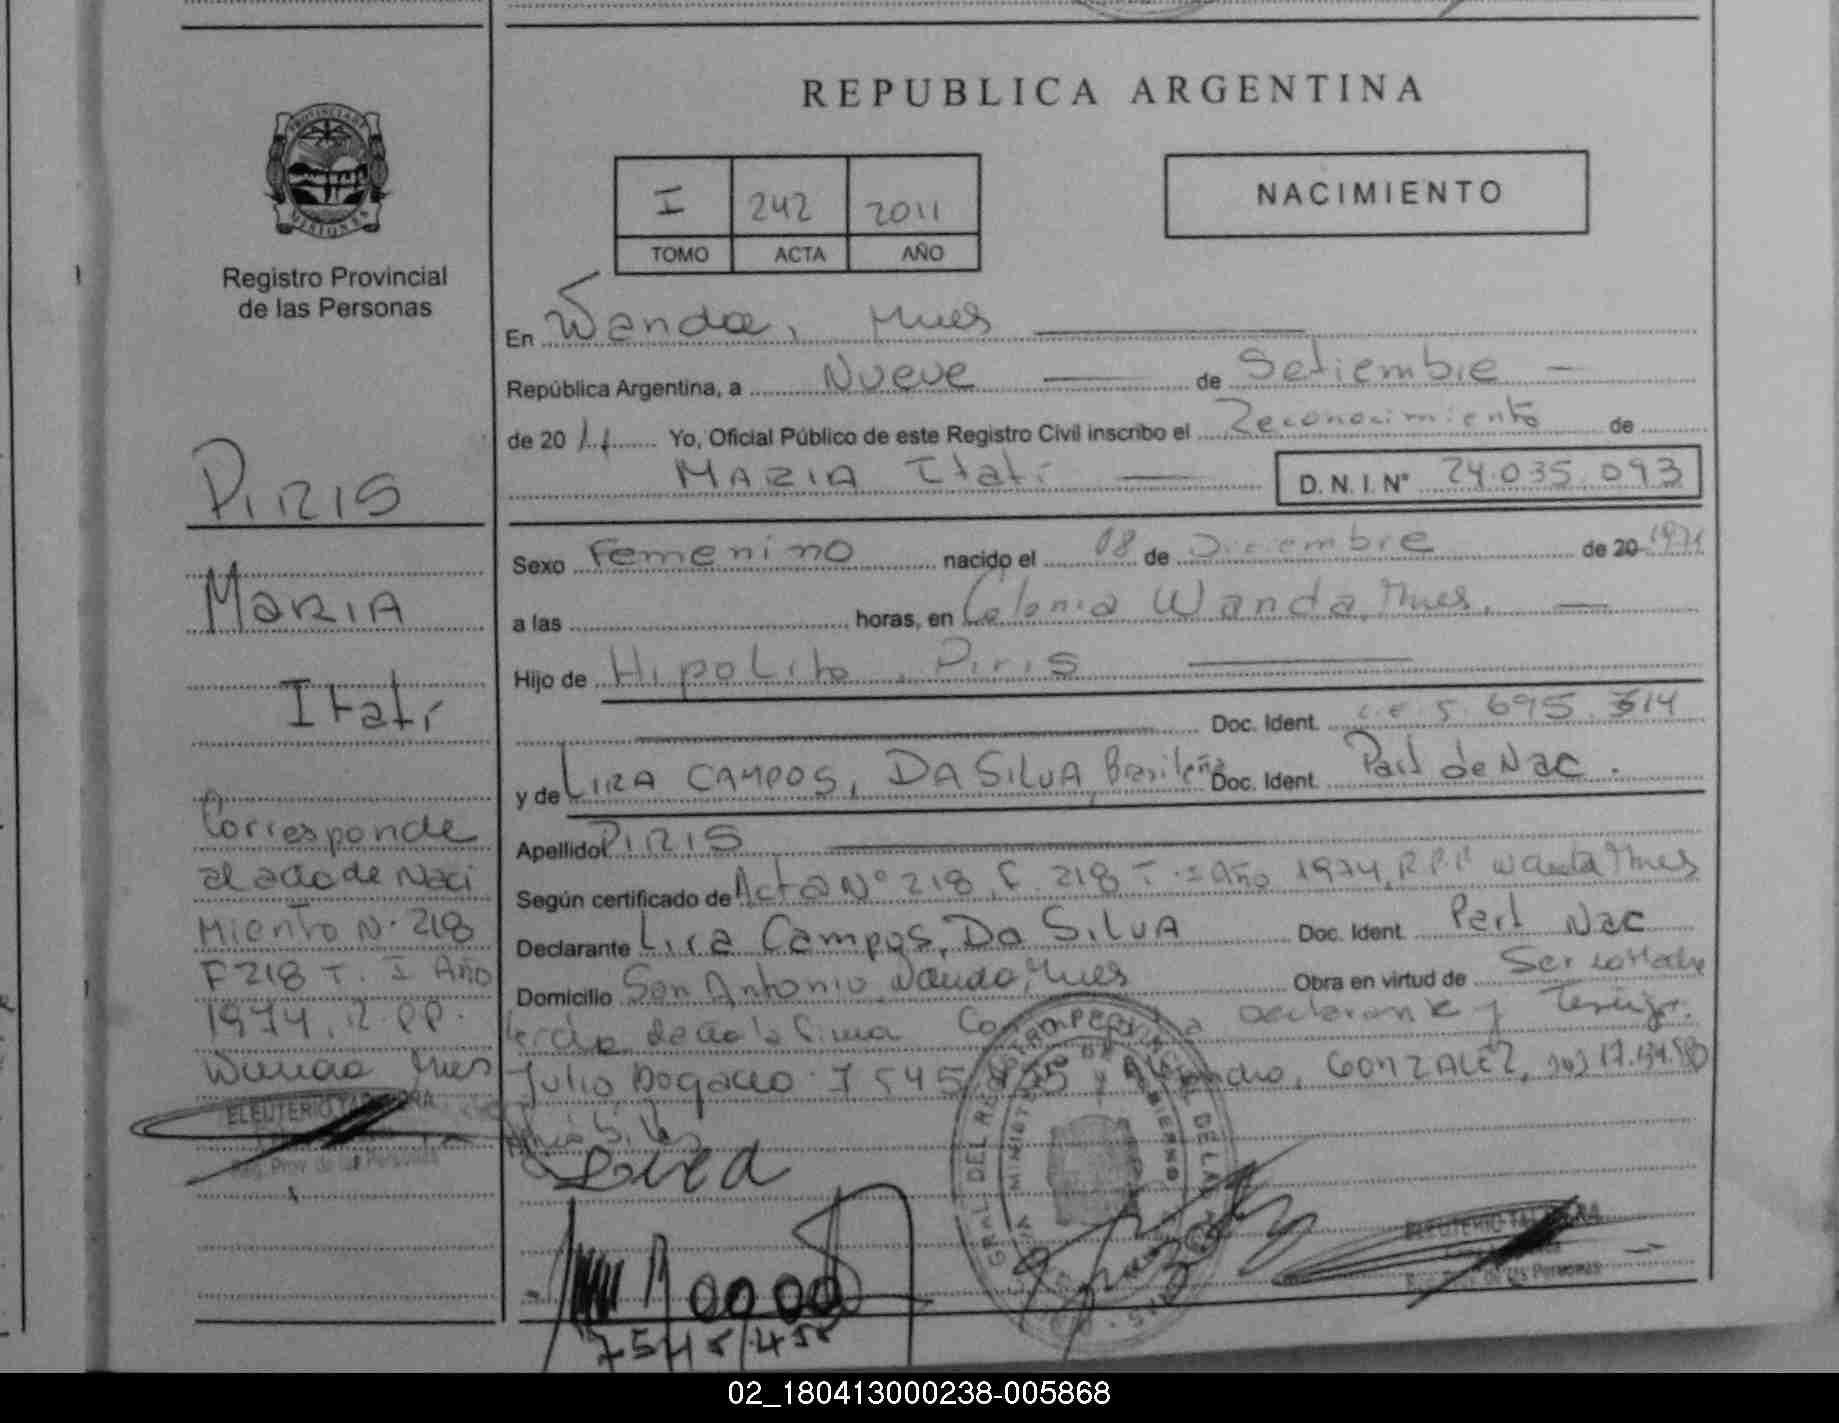 REPUBLICA ARGENTINA
PROVINCIA DE
MISIONES
Registro Provincial
de las Personas
I 242 2011
TOMO ACTA AÑO
NACIMIENTO
En Wanda, Mnes
República Argentina, a Nueve de Setiembre
de 20 11 Yo, Oficial Público de este Registro Civil inscribo el Reconocimiento de
MARIA Itatí D. N. I. N° 24.035.093
Sexo Femenino nacido el 08 de Diciembre de 20 1974
a las horas, en Colonia Wanda, Mnes.
Hijo de Hipolito, Piris
Doc. Ident. 5.695.314
y de LIRA CAMPOS, DA SILVA, Brasileña Doc. Ident. Part de Nac.
Apellido PIRIS
Según certificado de Acta N° 218 F. 218 T. I Año 1974, R.P.P. Wanda Mnes
Declarante Lira Campos, Da SILVA Doc. Ident. Part Nac
Domicilio San Antonio, Wanda, Mnes Obra en virtud de Ser la Madre
declarante y Testigo.
Julio, Bogado 7545 y GONZALEZ,
Lira
7545455
ELEUTERIO TALAVERA
Reg. Prov. de las Personas
PIRIS
MARIA
Itatí
Corresponde
al acta de Naci
Miento N. 218
F 218 T. I Año
1974, R.PP.
Wanda Mnes
ELEUTERIO TALAVERA
Reg. Prov. de las Personas
02_180413000238-005868